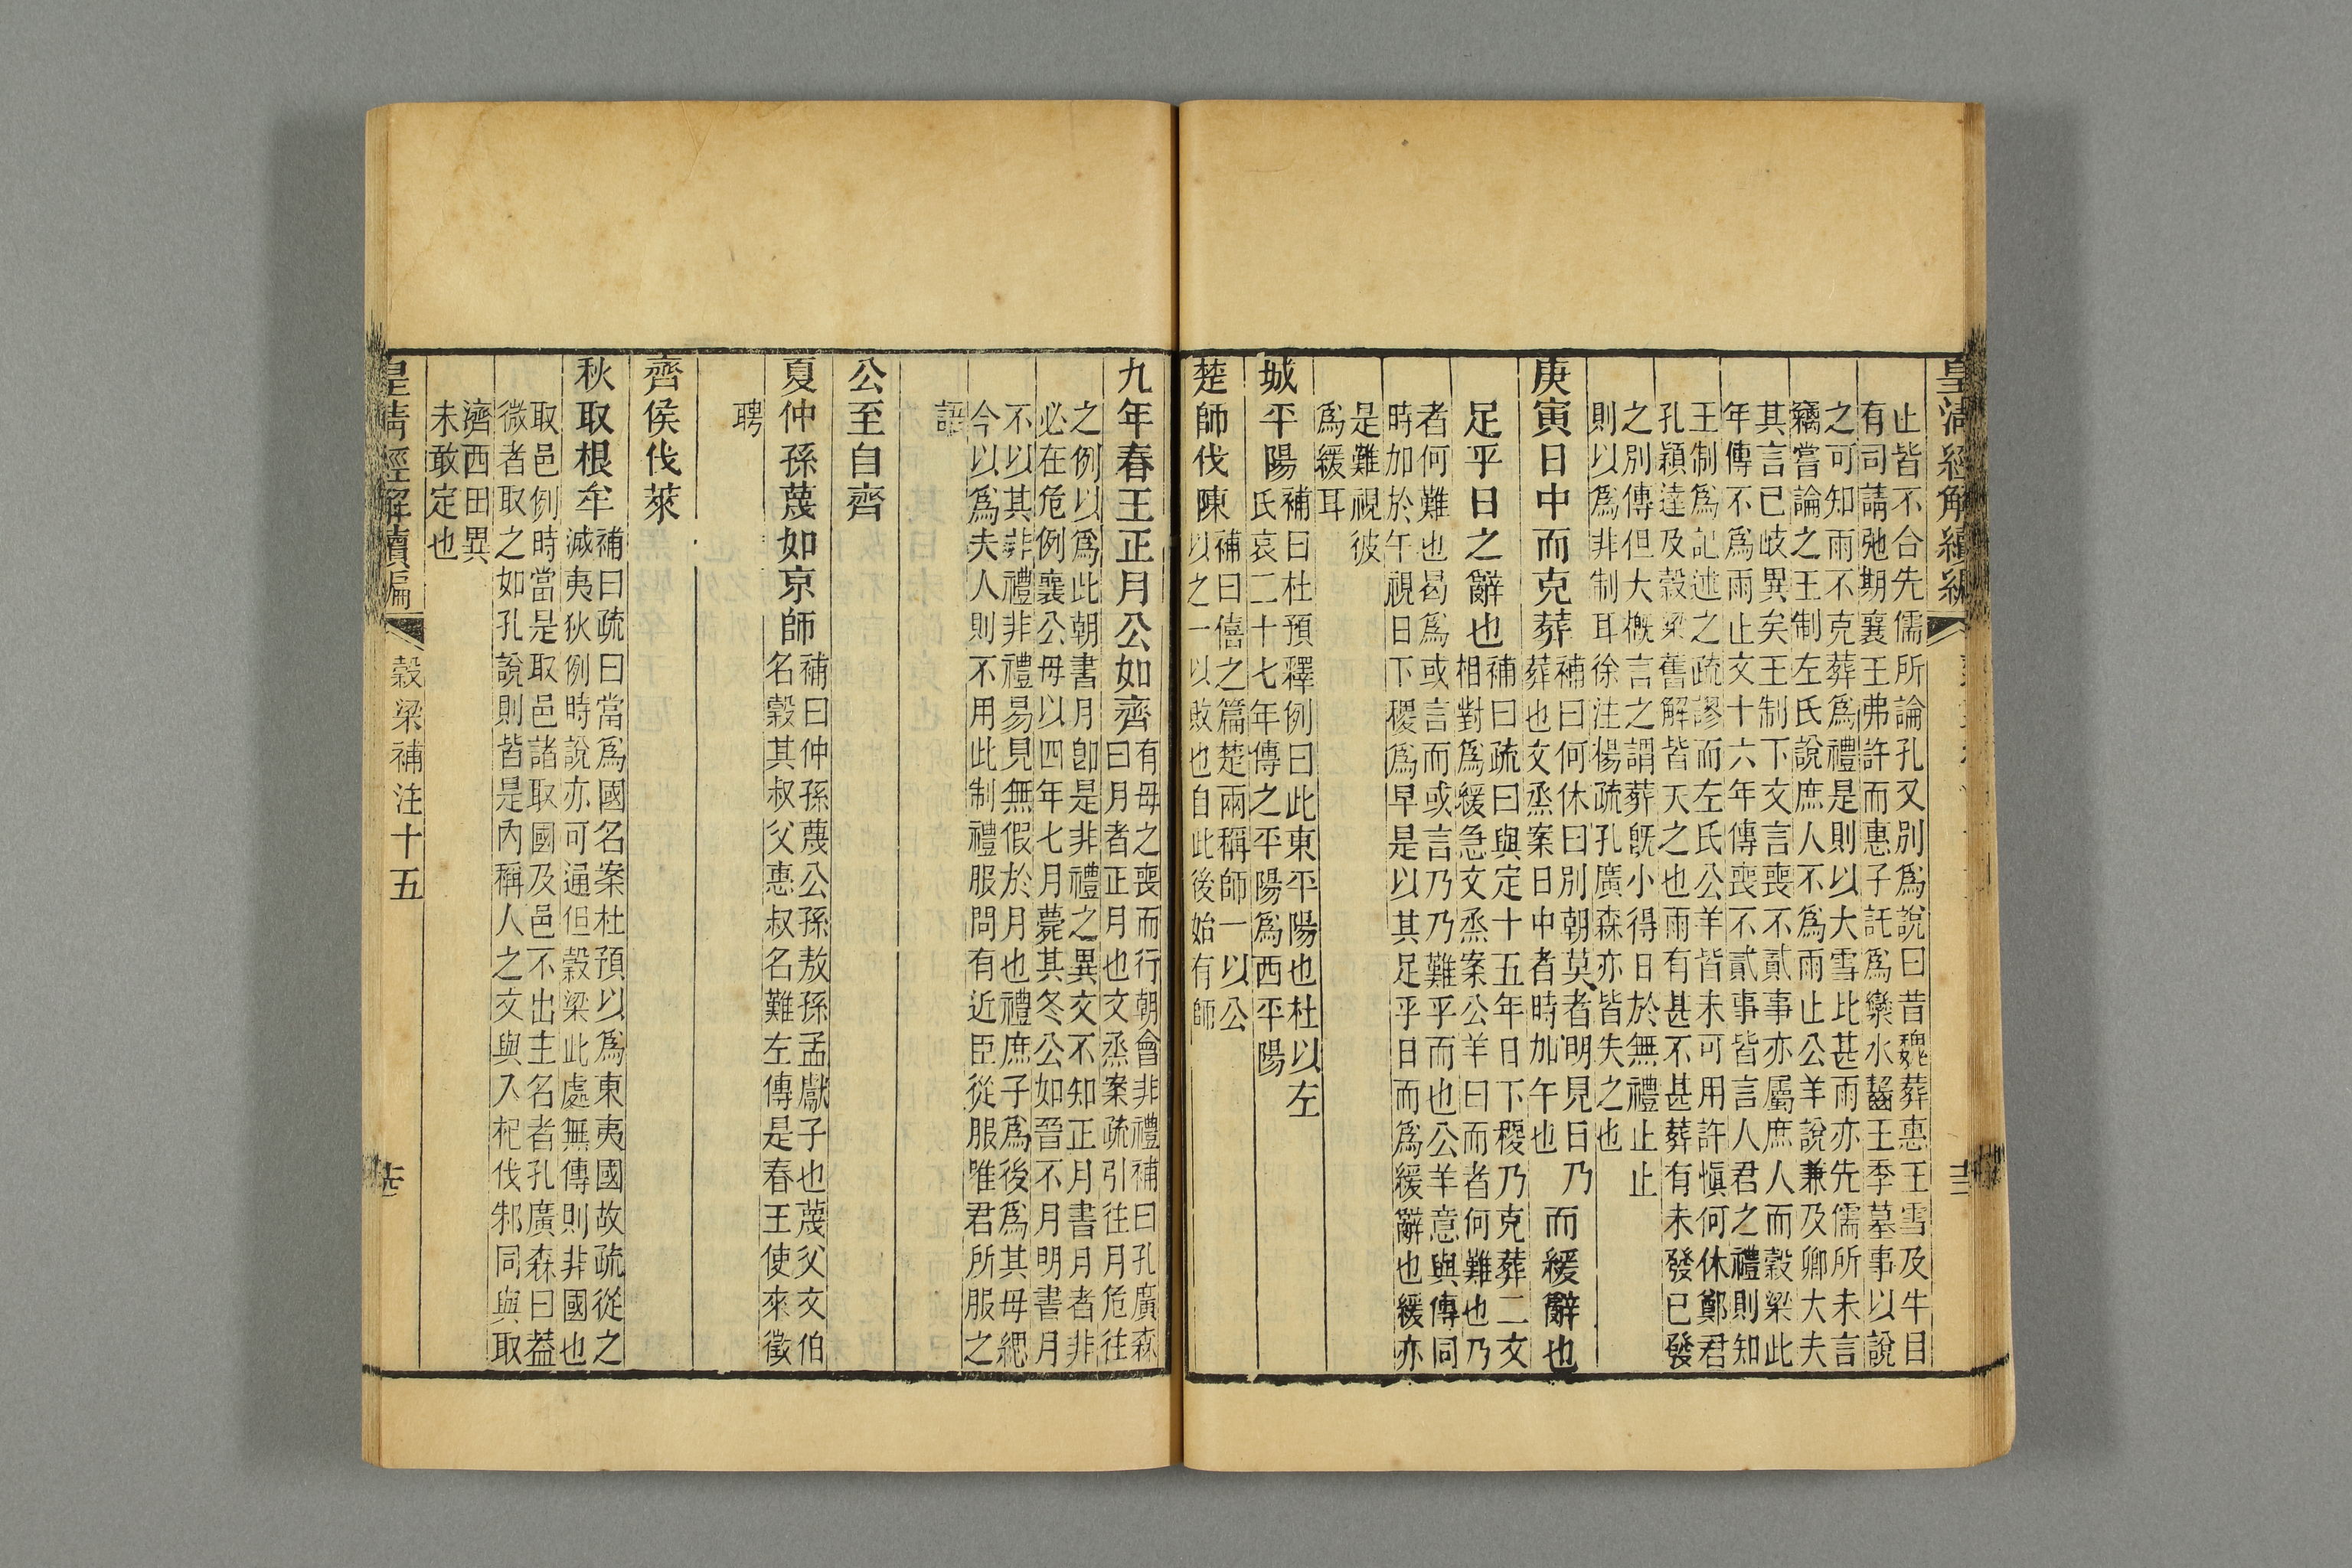 皇清經解續編
止皆不合先儒所論孔又別爲說曰昔魏葬惠王雪及牛目
有司請弛期襄王弗許而惠子託爲欒水齧王季墓事以說
之可知雨不克葬爲禮是則以大雪比甚雨亦先儒所未言
竊嘗論之王制左氏說庶人不爲雨止公羊說兼及卿大夫
其言已歧異矣王制下文言喪不貳事亦屬庶人而穀梁此
年傳不爲雨止文十六年傳喪不貳事皆言人君之禮則知
王制爲記述之疏謬而左氏公羊皆未可用許愼何休鄭君
孔穎達及穀梁舊解皆天之也雨有甚不甚葬有未發已發
之別傳但大槪言之謂葬旣小得日於無禮止止
則以爲非制耳徐注楊疏孔廣森亦皆失之也
庚寅日中而克葬
補曰何休曰別朝莫者明見日乃
葬也文烝案日中者時加午也
而緩辭也
足乎日之辭也
補曰疏曰與定十五年日下稷乃克葬二文
相對爲緩急文烝案公羊曰而者何難也乃
者何難也曷爲或言而或言乃乃難乎而也公羊意與傳同
時加於午視日下稷爲早是以其足乎日而爲緩辭也緩亦
是難視彼
爲緩耳
城平陽
補曰杜預釋例曰此東平陽也杜以左
氏哀二十七年傳之平陽爲西平陽
楚師伐陳
補曰僖之篇楚兩稱師一以公
以之一以敗也自此後始有師
九年春王正月公如齊
有母之喪而行朝會非禮補曰孔廣森
曰月者正月也文烝案疏引往月危往
之例以爲此朝書月卽是非禮之異文不知正月書月者非
必在危例襄公母以四年七月薨其冬公如晉不月明書月
不以其非禮非禮易見無假於月也禮庶子爲後爲其母緦
今以爲夫人則不用此制禮服問有近臣從服唯君所服之
語
公至自齊
夏仲孫蔑如京師
補曰仲孫蔑公孫敖孫孟獻子也蔑父文伯
名穀其叔父惠叔名難左傳是春王使來徵
聘
齊侯伐萊
秋取根牟
補曰疏曰當爲國名案杜預以爲東夷國故疏從之
滅夷狄例時說亦可通但穀梁此處無傳則非國也
取邑例時當是取邑諸取國及邑不出主名者孔廣森曰葢
微者取之如孔說則皆是內稱人之文與入杞伐邾同與取
濟西田異
未敢定也
皇清經解續編
穀梁補注十五